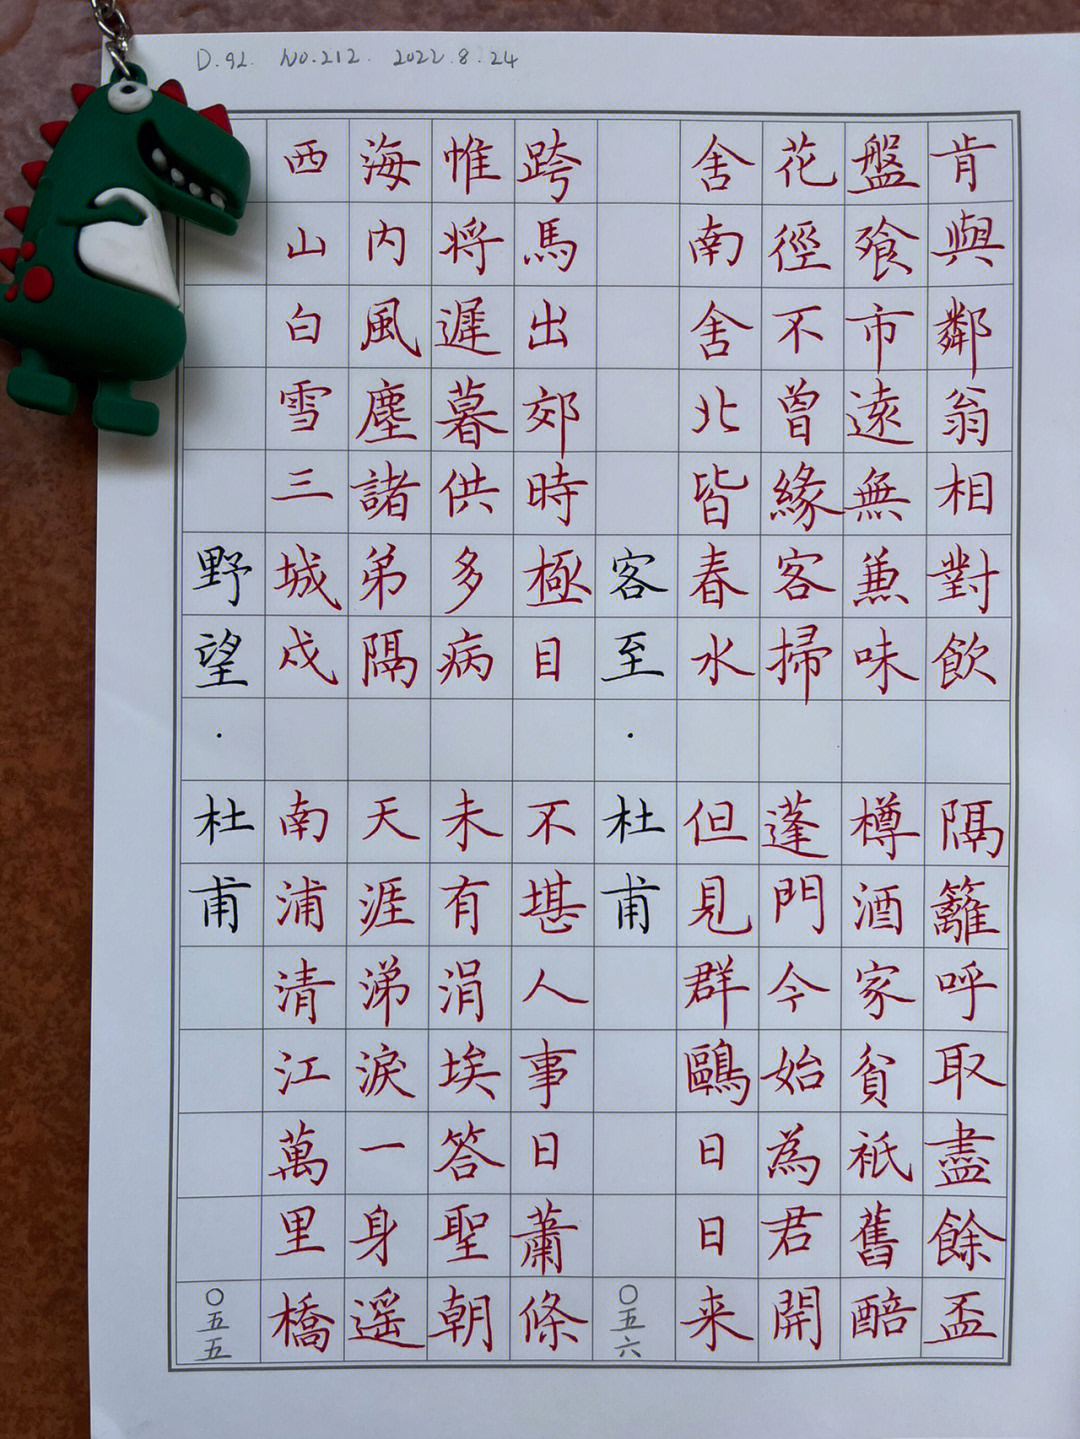 D.92. NO.212. 2022.8.24
野望·杜甫 〇五五
西山白雪三城戍 南浦清江萬里橋
海内風塵諸弟隔 天涯涕淚一身遥
惟将遲暮供多病 未有涓埃答聖朝
跨馬出郊時極目 不堪人事日蕭條
客至·杜甫 〇五六
舍南舍北皆春水 但見群鷗日日来
花徑不曾緣客掃 蓬門今始為君開
盤飱市遠無兼味 樽酒家貧祇舊醅
肯與鄰翁相對飲 隔籬呼取盡餘盃